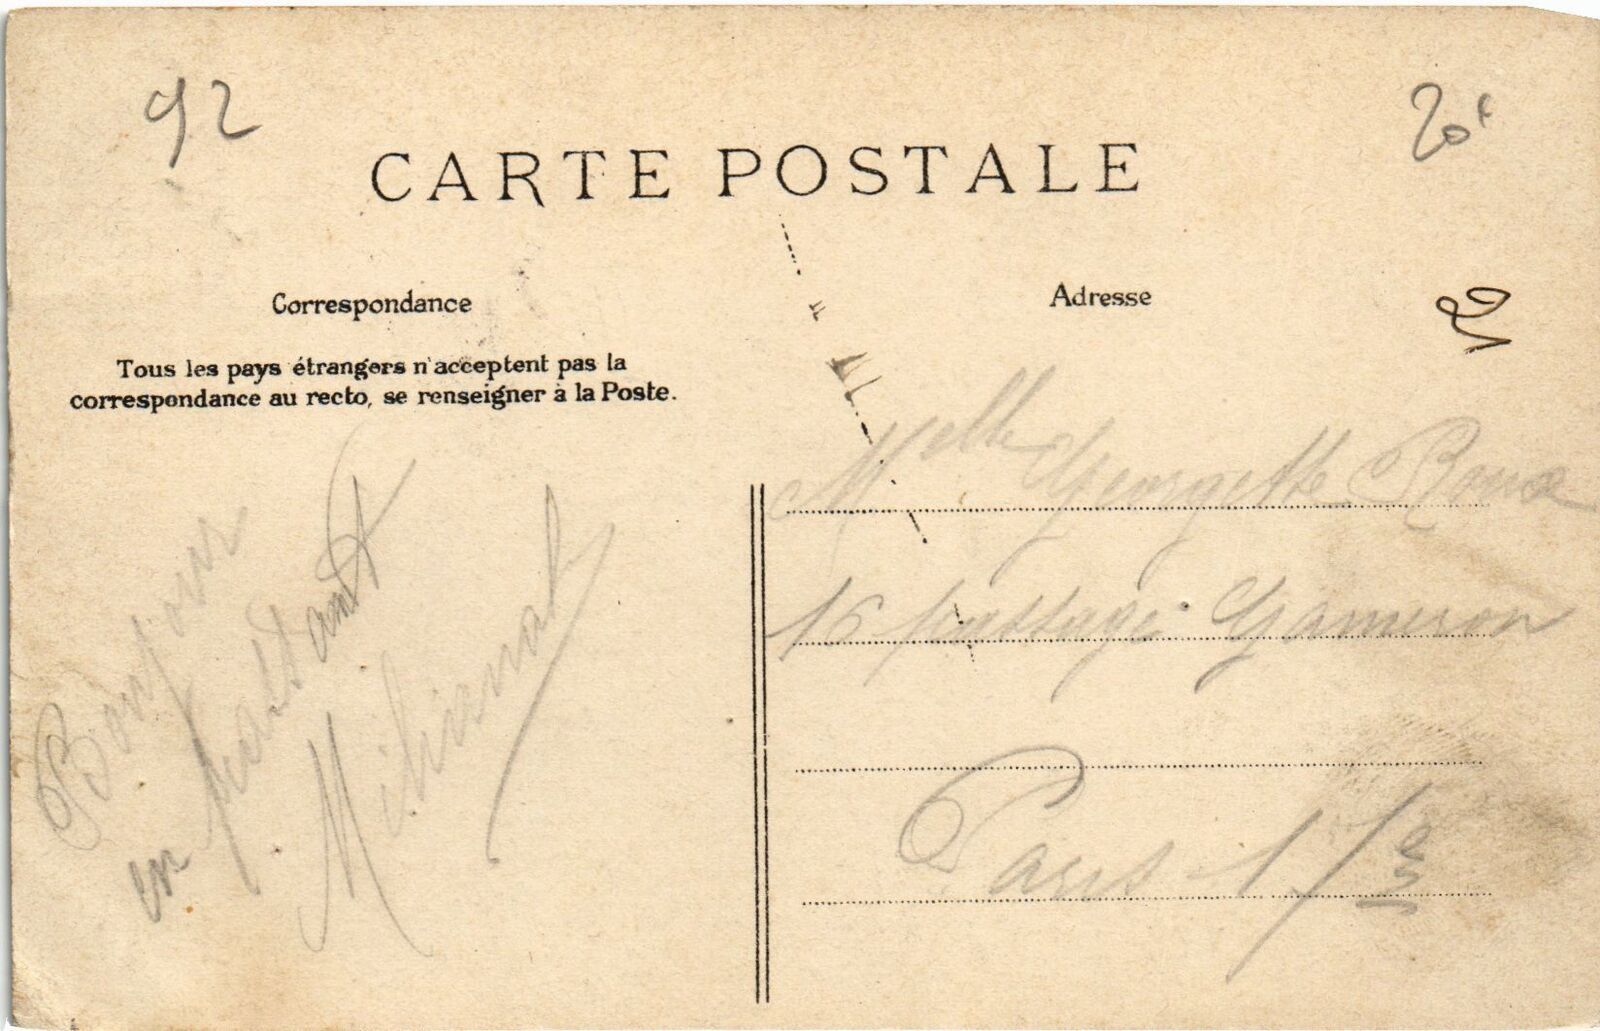 92
20f
CARTE POSTALE
Correspondance
Adresse
21
Tous les pays étrangers n'acceptent pas la
correspondance au recto, se renseigner à la Poste.
Bonjour
en passant
Melle Georgette Roux
16 passage
Paris